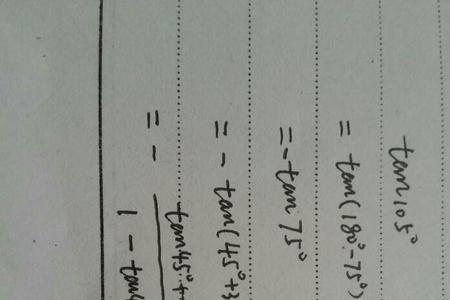 tan105°
= tan(180°-75°)
= -tan 75°
= - tan(45°+3
= - tan45°+
1 - tan